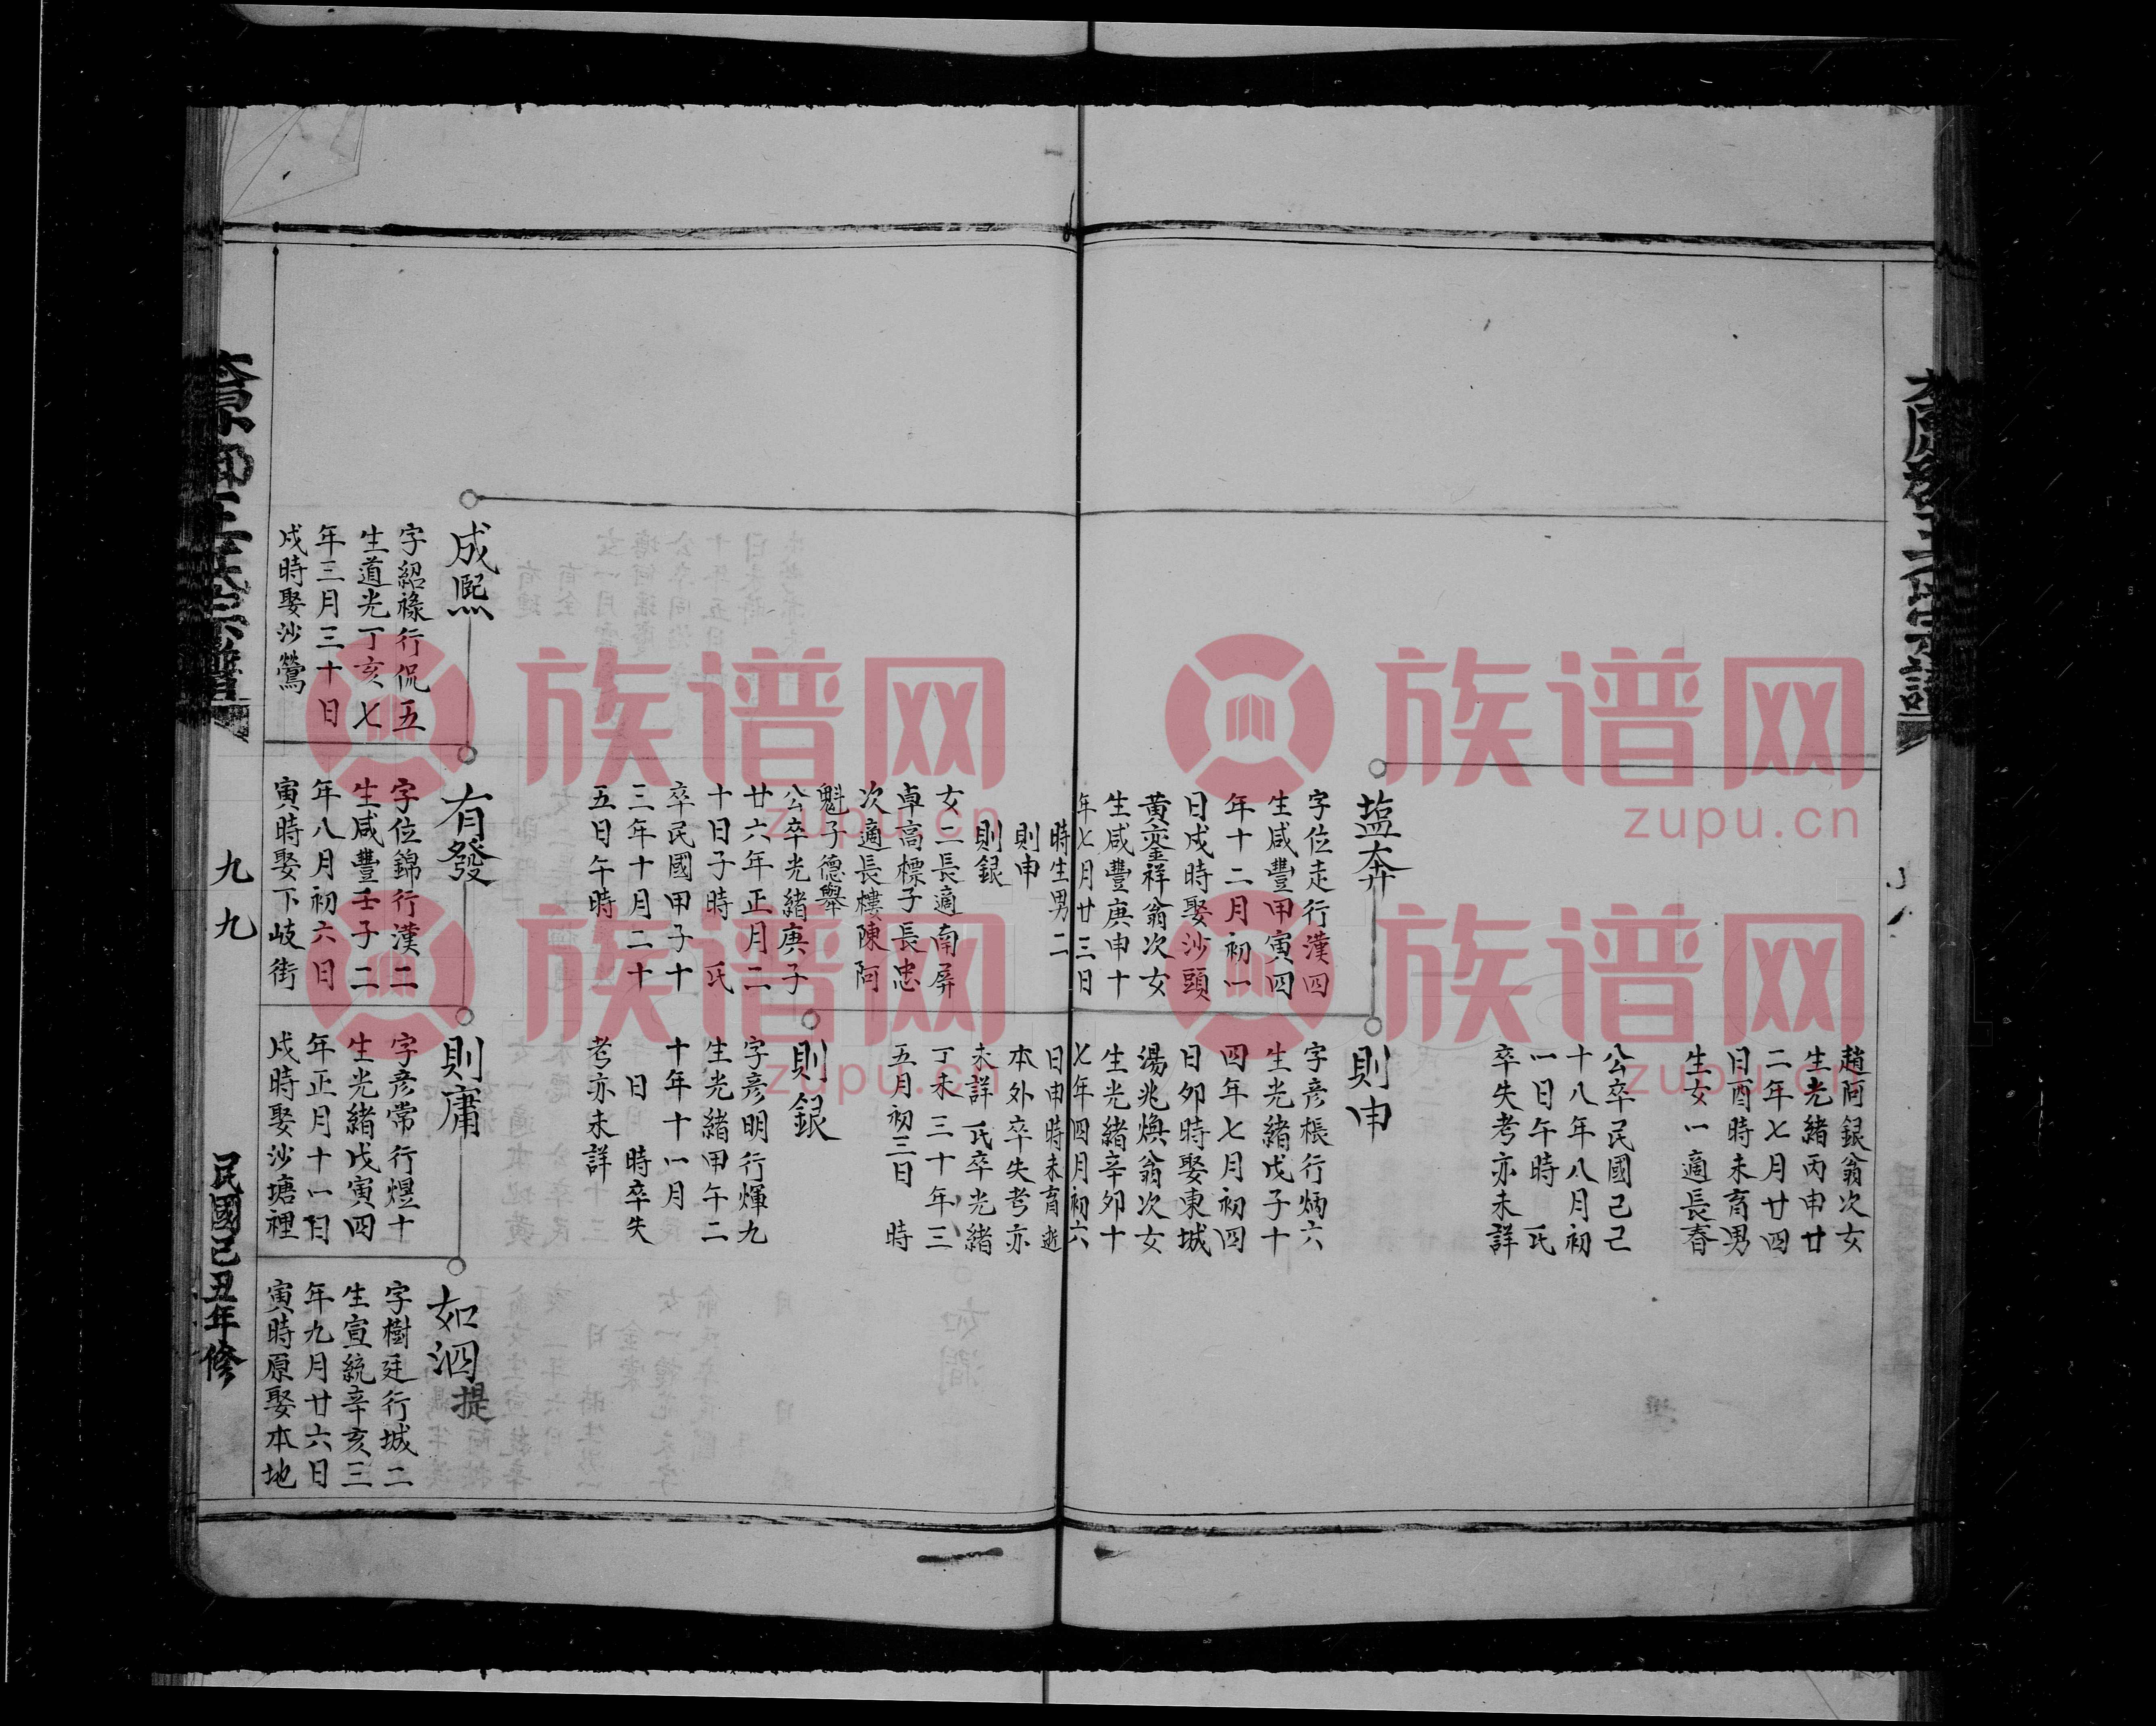 趙阿銀翁次女
生光緒丙申廿
二年七月廿四
日酉時未育男
生女一適長春
公卒民國己己
十八年八月初
一日午時　氏
卒失考亦未詳
盐奔
字位走行漢四
生咸豐甲寅四
年十二月初一
日戌時娶沙頭
黃鎏祥翁次女
生咸豐庚申十
年七月廿三日
時生男二
則申
則銀
女二長適南屏
卓高標子長忠
次適長樓陳阿
魁子德舉
公卒光緒庚子
廿六年正月二
十日子時　氏
卒民國甲子十
三年十月二十
五日午時
則申
字彥棖行炳六
生光緒戊子十
四年七月初四
日卯時娶東城
湯兆煥翁次女
生光緒辛卯十
七年四月初六
日申時未育逝
本外卒失考亦
未詳氏卒光緒
丁未三十年三
五月初三日　時
則銀
字彥明行煇九
生光緒甲午二
十年十一月
日　時卒失
考亦未詳
成熙
字紹祿行侃五
生道光丁亥七
年三月三十日
戌時娶沙鶯
有發
字位錦行漢二
生咸豐壬子二
年八月初六日
寅時娶下岐街
則庸
字彥常行煜十
生光緒戊寅四
年正月十一日
戌時娶沙塘裡
如泗
提
字樹廷行城二
生宣統辛亥三
年九月廿六日
寅時原娶本地
九九
民國己丑年修
族谱网
zupu.cn
族谱网
zupu.cn
族谱网
zupu.cn
族谱网
zupu.cn